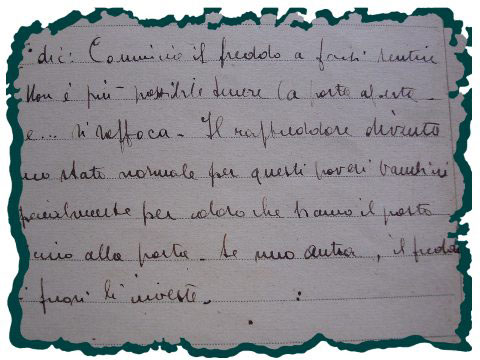 dic: Comincia il freddo a farsi sentire
Non è più possibile tenere la porta aperta
e... si soffoca. Il raffreddore diventa
no stato normale per questi poveri bambini
pecialmente per coloro che hanno il posto
cino alla porta. Se uno entra, il freddo
i fuori li investe.